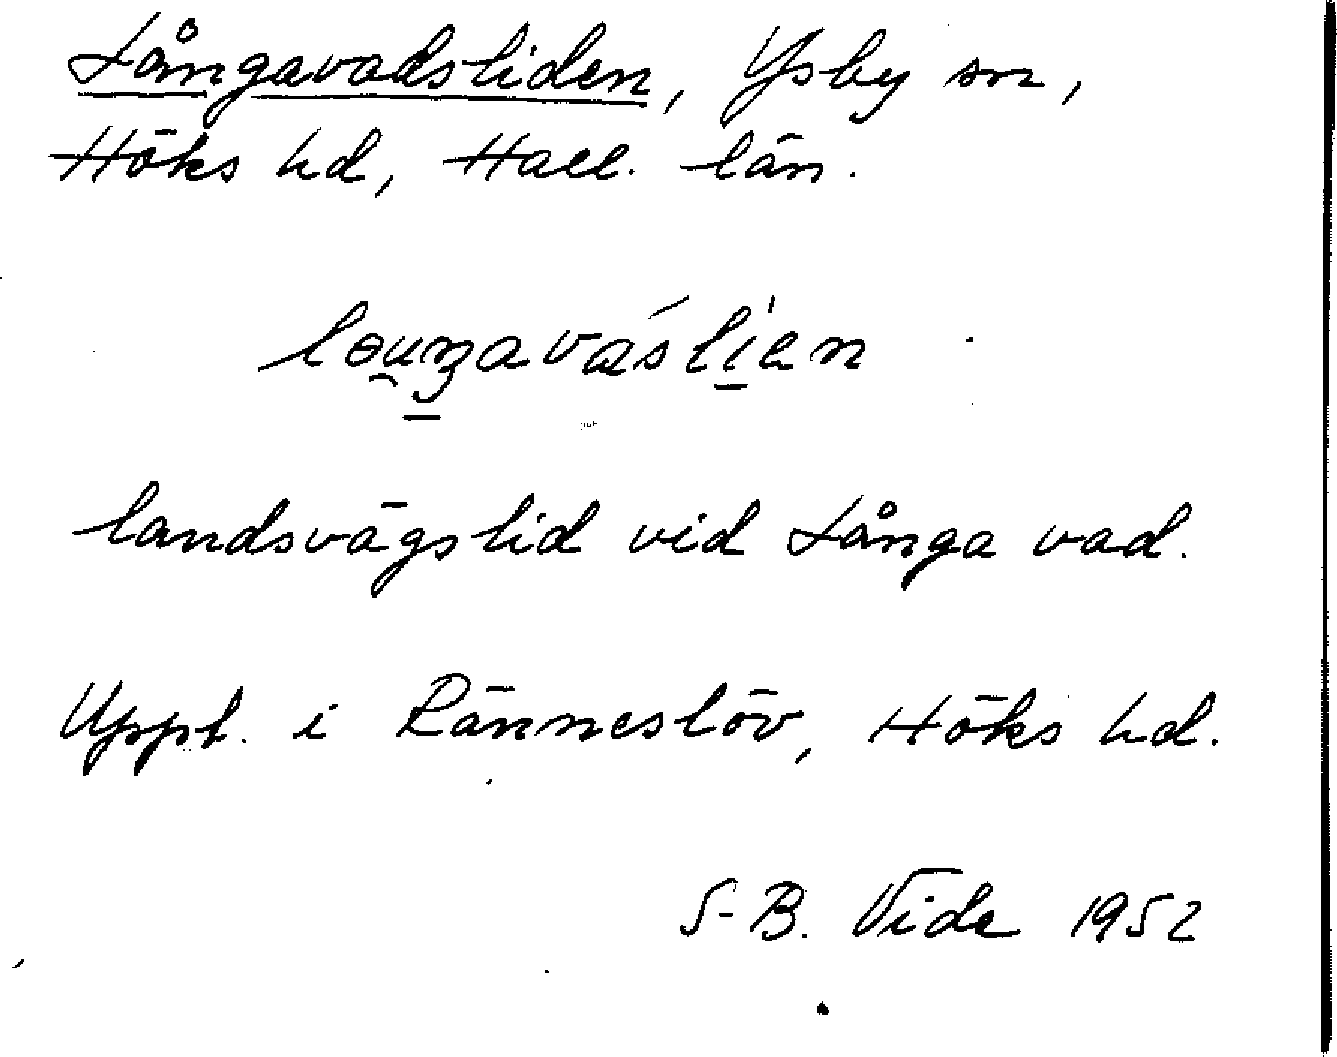 Långavadsliden, Ysby sn,
Höks hd, Hall. län.
landsvägslid vid Långa vad.
Uppt. i Ränneslöv, Höks hd.
S-B. Vide 1952